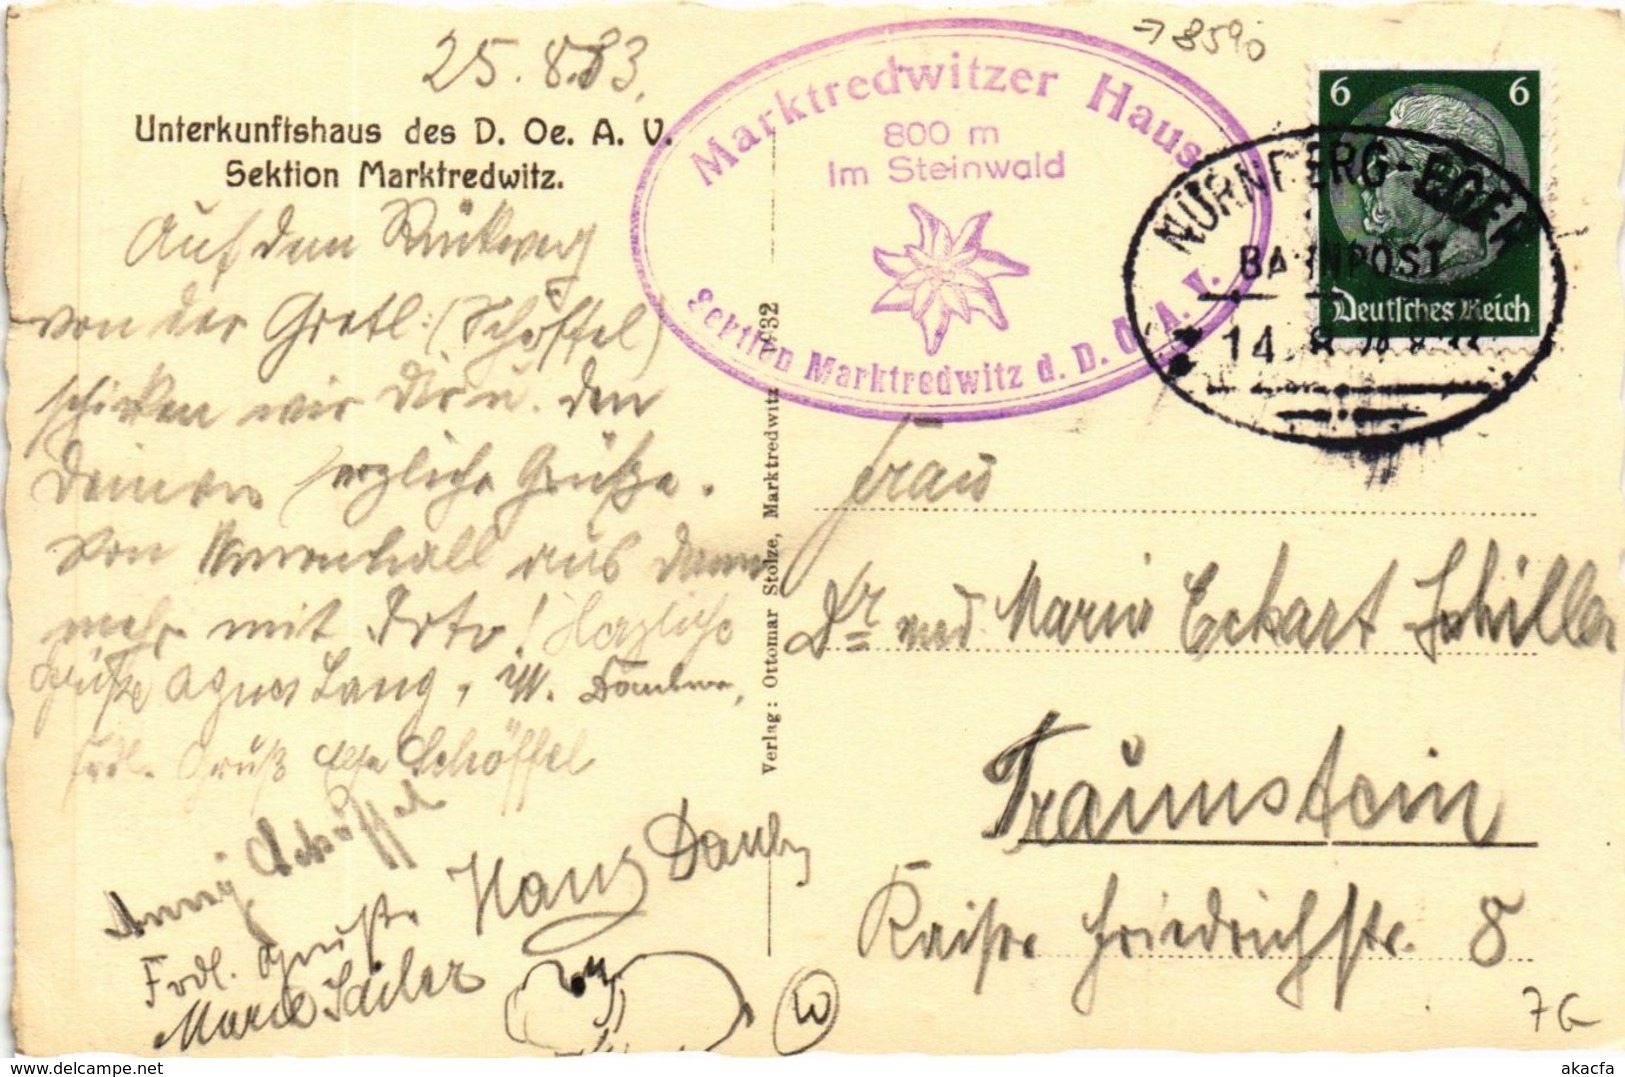 25.8.83.
→ 8590
Unterkunftshaus des D. Oe. A. V.
Sektion Marktredwitz.
Marktredwitzer Haus
800 m
Im Steinwald
Sektion Marktredwitz d. D. Ö. A. V.
6 6
Deutsches Reich
NÜRNBERG-EGER
BAHNPOST
14. 8.
Auf dem Rückweg
von der Gretl (Schöffel)
schicken wir Dir u. den
Deinen herzliche Grüße.
Von aus dann
mehr mit Herzliche
Grüße Agnes Lang,
Frdl. Gruß Schöffel
Schöffel
Hans
Frdl. Grüße
Marie Sailer
Verlag: Ottomar Stolze, Marktredwitz 1932
Frau
Dr. med. Marie Eckart Schiller
Traunstein
Kaiser Friedrichstr. 8
W
7G
akacfa